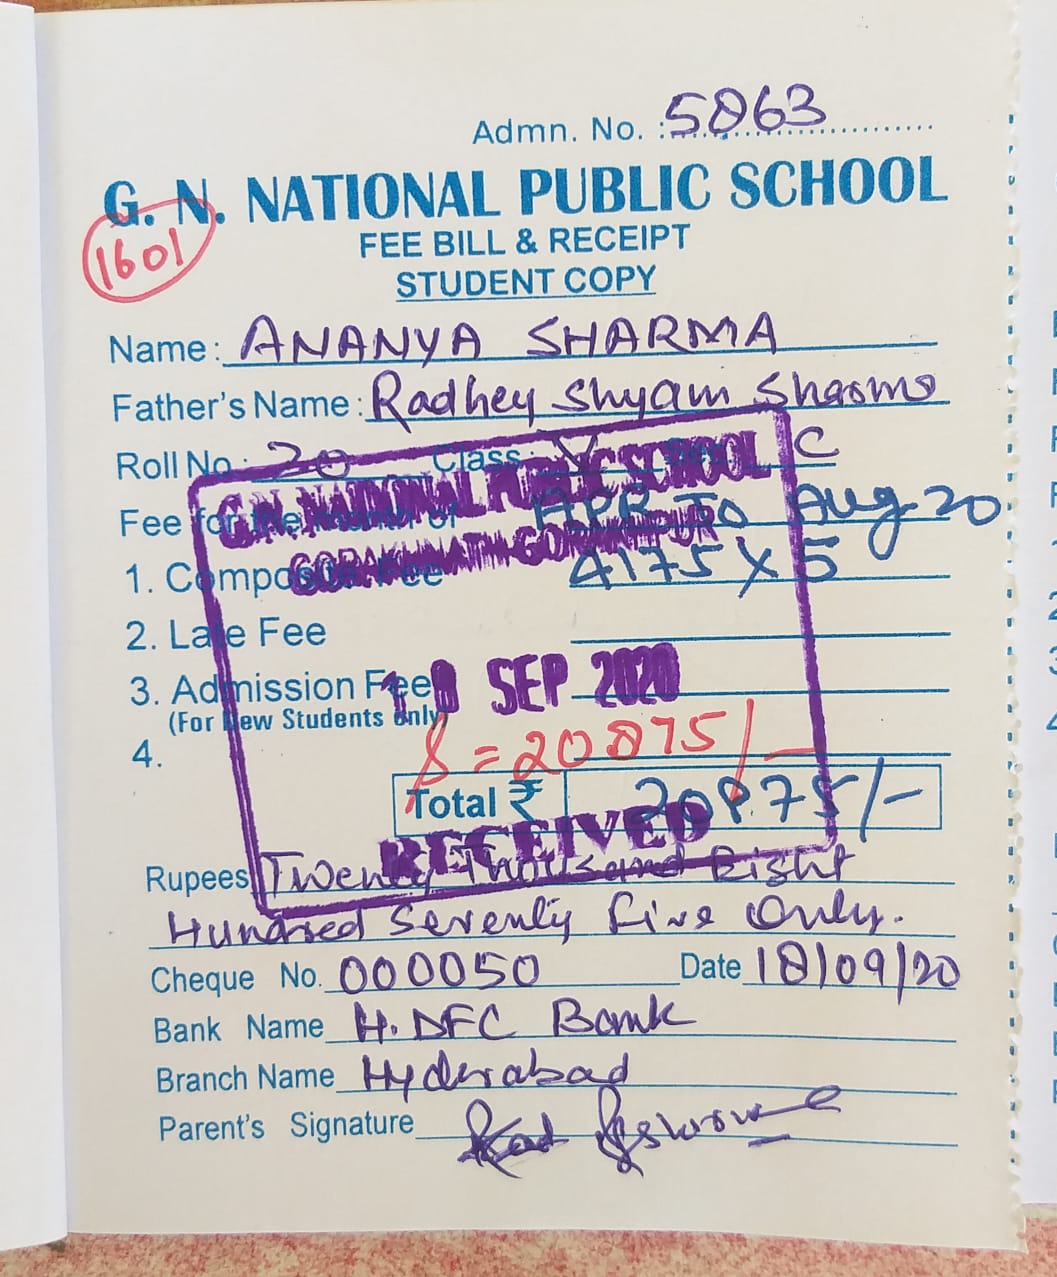 Admn. No. : 5863
G. N. NATIONAL PUBLIC SCHOOL
1601
FEE BILL & RECEIPT
STUDENT COPY
Name : ANANYA SHARMA
Father's Name : Radhey Shyam Sharma
Roll No.: 20 Class: V Sec. C
G.N. NATIONAL PUBLIC SCHOOL
Fee for the month of APR TO Aug 20
GORAKHNATH GORAKHPUR
1. Composite Fee 4175 X 5
2. Late Fee
3. Admission Fee
18 SEP 2020
(For New Students only)
4.
= 20875/-
Total ₹ 20875/-
RECEIVED
Rupees Twenty Thousand Eight
Hundred Seventy Five Only.
Cheque No. 000050 Date 18/09/20
Bank Name H.DFC Bank
Branch Name Hyderabad
Parent's Signature